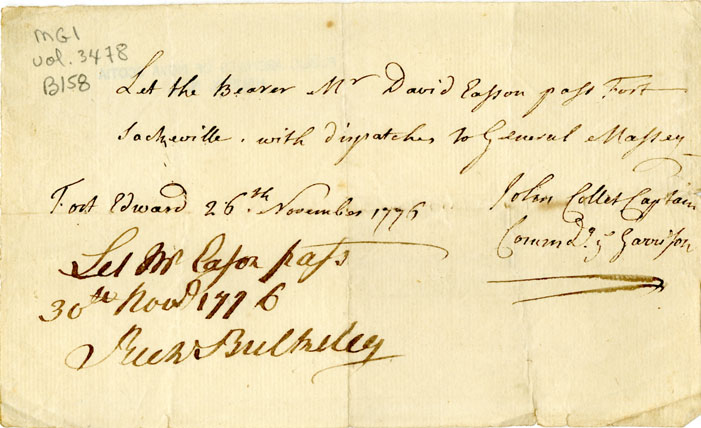 MG1
vol. 3478
B158
Let the Bearer Mr David Easson pass Fort
Sackeville. with dispatches to General Massey
Fort Edward 26.th November 1776
John Collet Captain
Commdr. ye Garrisson
Let Mr Eason pass
30th Novr 1776
Richd Bulkeley